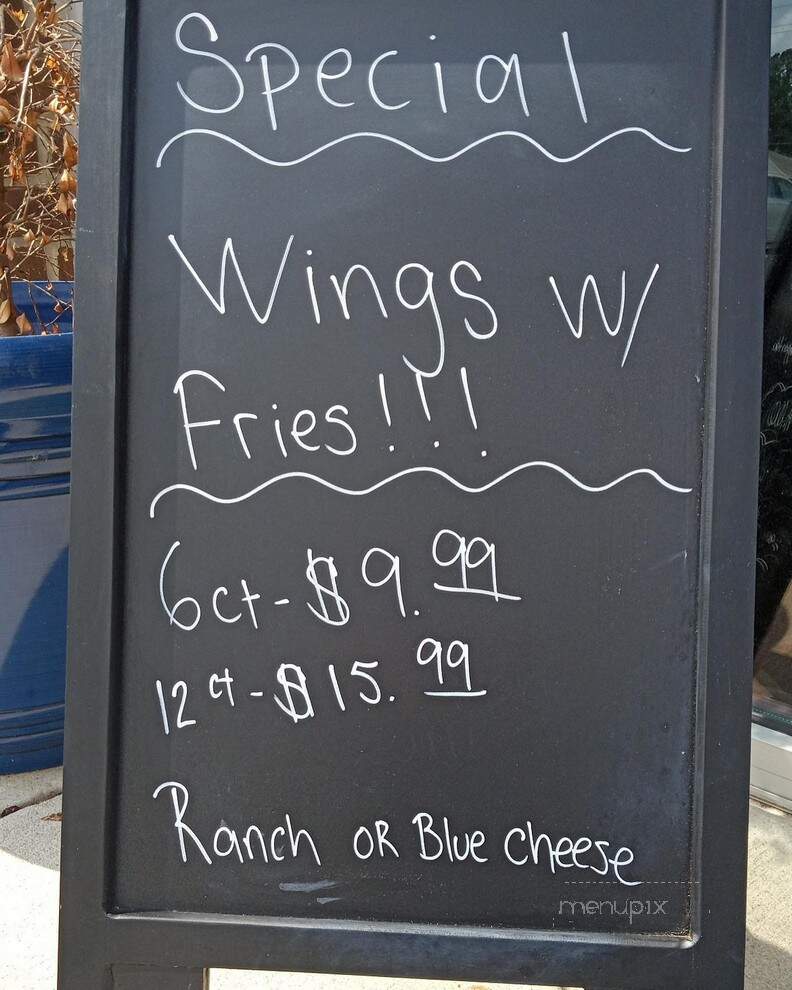 Special
Wings w/
Fries!!!
6ct-$9.99
12ct-$15.99
Ranch OR Blue cheese
menupix